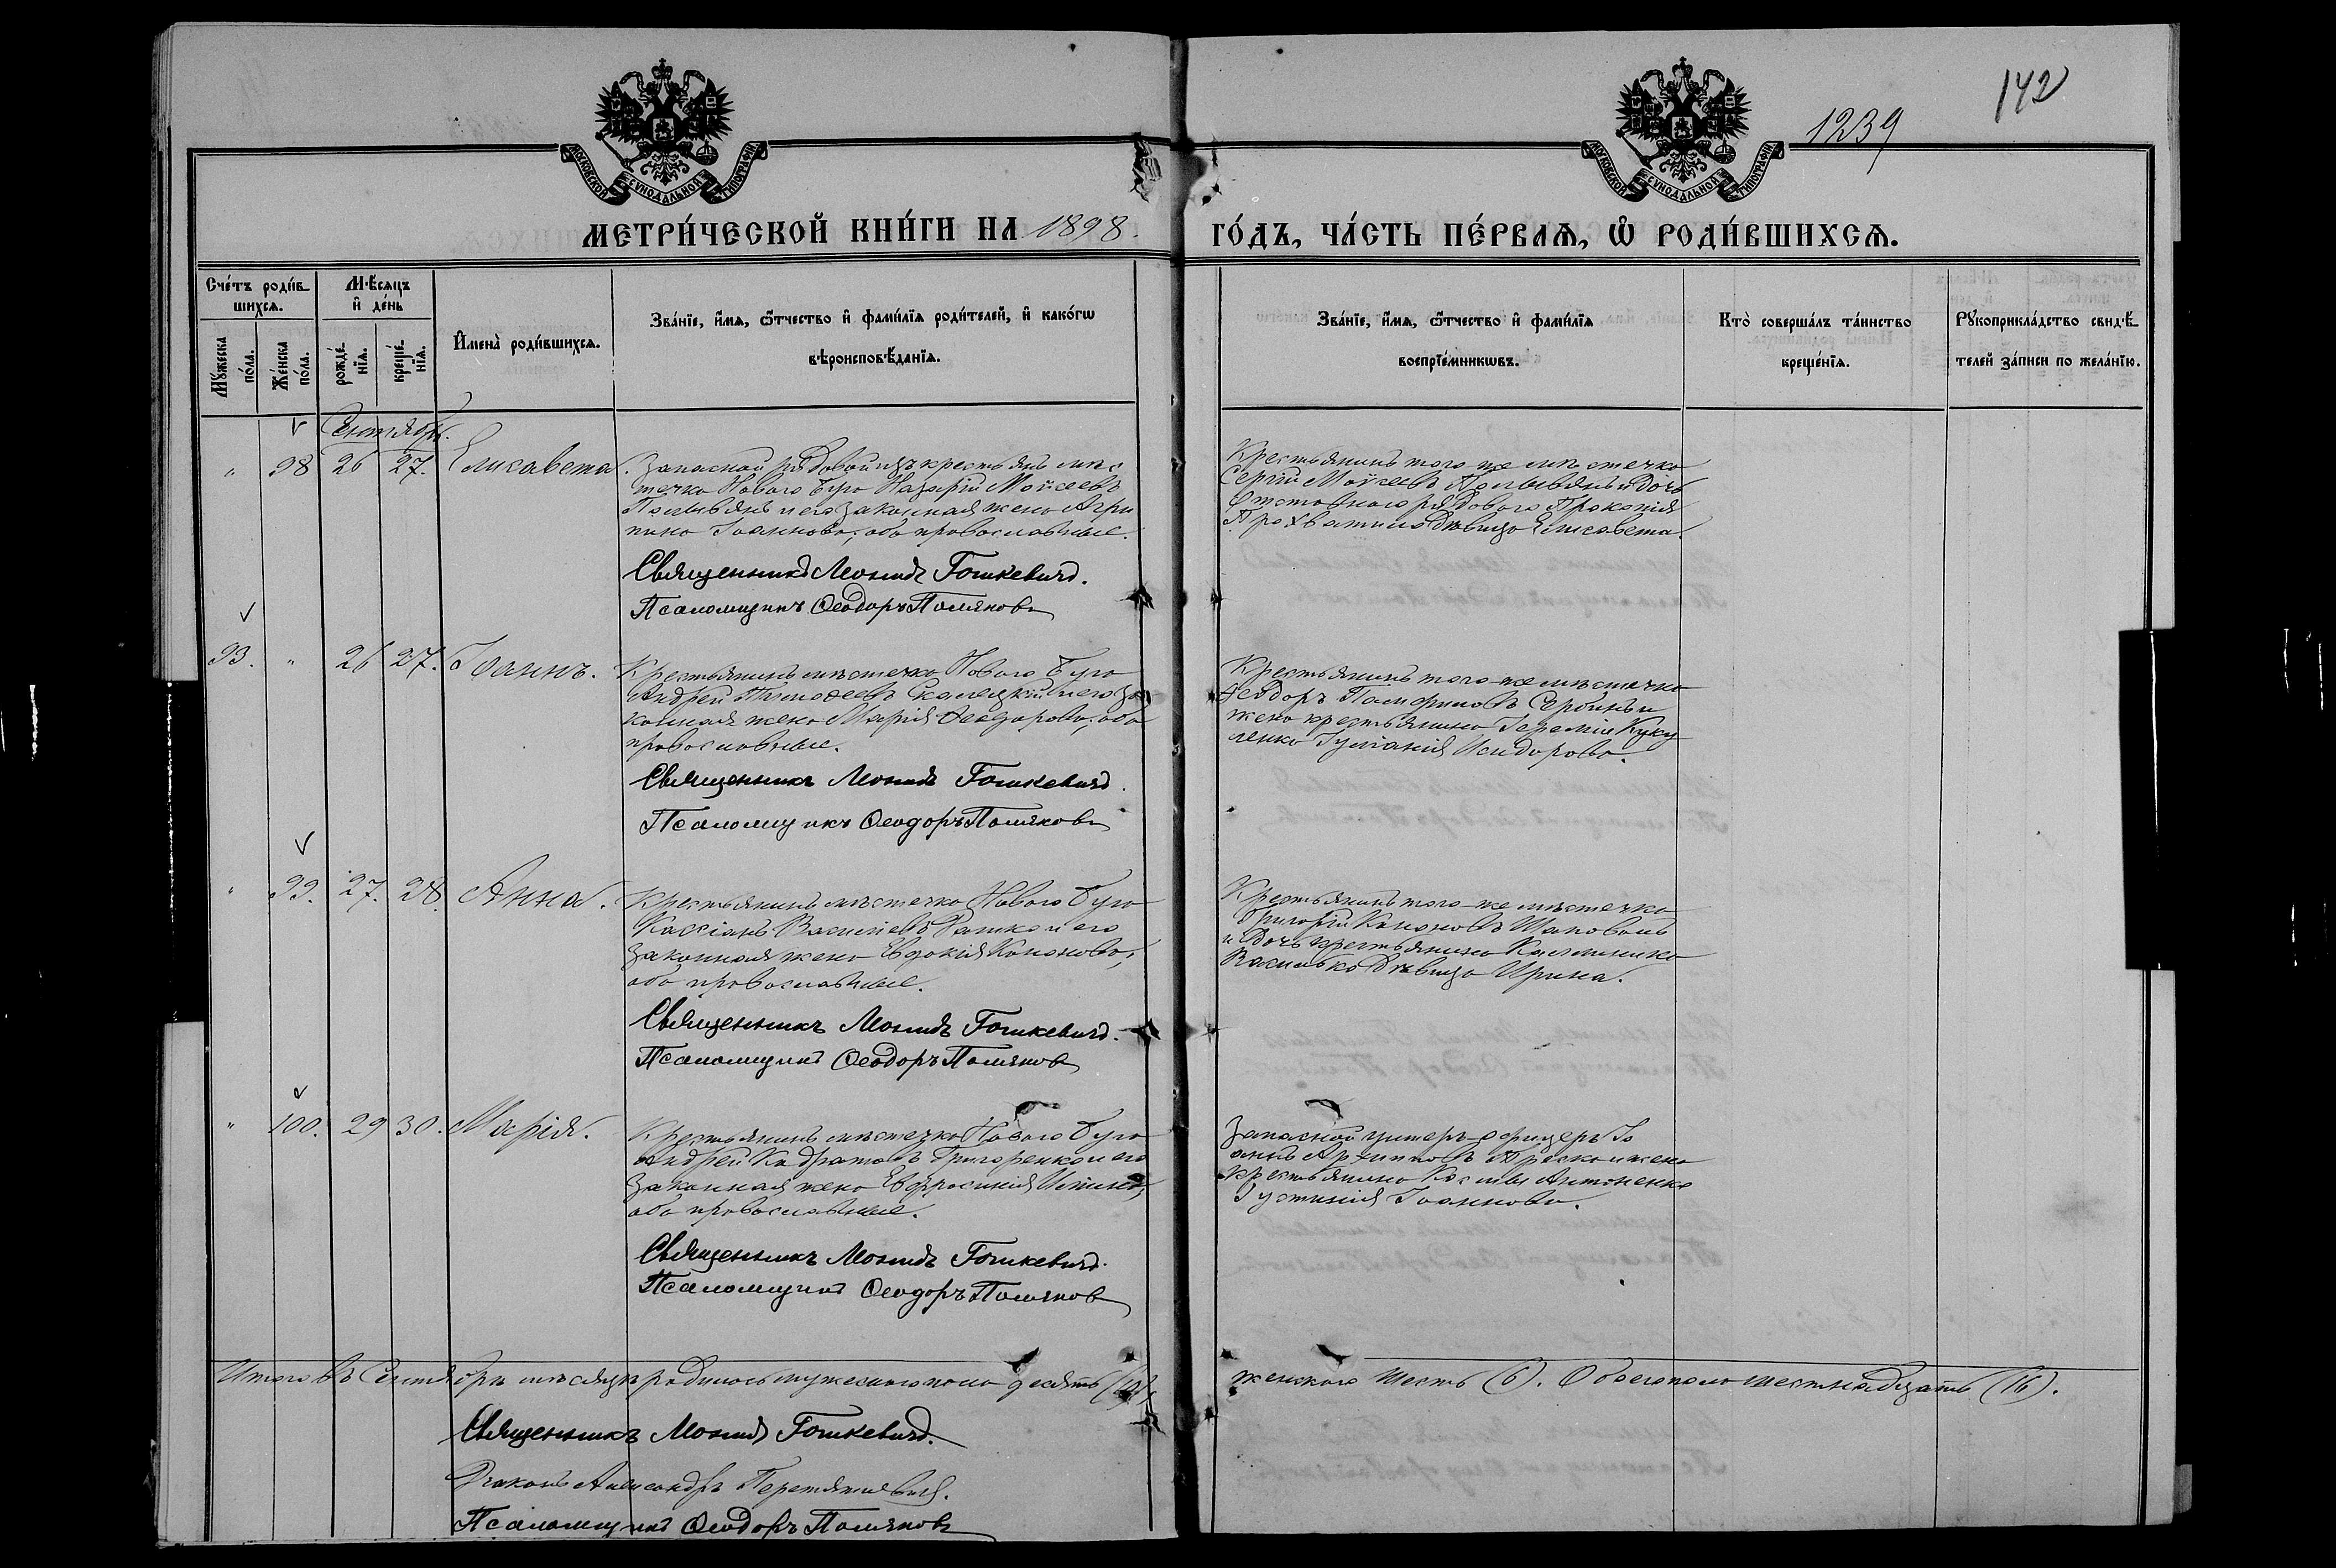 1239
142
МОСКОВСКОЙ СѴНОДАЛЬНОЙ ТИПОГРАФІИ
МОСКОВСКОЙ СѴНОДАЛЬНОЙ ТИПОГРАФІИ
МЕТРИ́ЧЕСКОЙ КНИ́ГИ НА 1898.
ГО́ДЪ, ЧА́СТЬ ПЕ́РВАѦ, Ѡ РОДИ́ВШИХСѦ.
Сче́тъ роди́в-
шихсѧ.
Мѣ́сѧцъ
и де́нь
Мꙋ́жеска по́ла.
Же́нска по́ла.
рожде́-нїѧ.
креще́-нїѧ.
Имена̀ роди́вшихсѧ.
Зва́нїе, и́мѧ, ѻ҆́тчество и фами́лїѧ роди́телей, и како́гѡ
вѣроисповѣ́данїѧ.
Зва́нїе, и́мѧ, ѻ҆́тчество и фами́лїѧ
воспрїе́мникѡвъ.
Кто̀ соверша́лъ та́инство
креще́нїѧ.
Рꙋкоприкла́дство свидѣ́-
телей за́писи по жела́нїю.
Сентябрь.
" 98 26 27. Елисавета.
Запасной рядовой изъ крестьянъ мѣс
течка Новаго Буга Назарій Моисеевъ
и его законная жена Агри
пина Іоаннова, оба православные.
Священникъ Леонидъ Гошкевичъ.
Псаломщикъ Ѳеодоръ Поляковъ
Крестьянинъ того-же мѣстечка
Сергій Моисеевъ и дочь
Отставнаго рядового Прокопія
дѣвица Елисавета.
93. " 26 27. Іоаннъ.
Крестьянинъ мѣстечка Новаго Буга
Андрей Тимоѳеевъ и его за
конная жена Марія Ѳеодорова, оба
православные.
Священникъ Леонидъ Гошкевичъ.
Псаломщикъ Ѳеодоръ Поляковъ
Крестьянинъ того-же мѣстечка
Ѳеодоръ и
жена крестьянина Іереміи Куку
ленко Іуліанія Исидорова.
" 99. 27. 28. Анна.
Крестьянинъ мѣстечка Новаго Буга
Кассіанъ Василіевъ и его
законная жена Евдокія Кононова,
оба православные.
Священникъ Леонидъ Гошкевичъ.
Псаломщикъ Ѳеодоръ Поляковъ
Крестьянинъ того-же мѣстечка
Григорій Кононовъ Шаповалъ
и дочь крестьянина Каллиника
Василько дѣвица Ирина.
" 100. 29 30. Марія.
Крестьянинъ мѣстечка Новаго Буга
Андрей Кодратовъ Григоренко и его
законная жена Евфросинія
оба православные.
Священникъ Леонидъ Гошкевичъ.
Псаломщикъ Ѳеодоръ Поляковъ
Запасной унтеръ-офицеръ Іо
аннъ Архиповъ и жена
крестьянина Космы Антоненко
Іустинія Іоаннова.
Итого въ Сентябрѣ мѣсяцѣ родилось мужескаго пола десять (10),
женскаго шесть (6). Обоего пола шестнадцать (16).
Священникъ Леонидъ Гошкевичъ.
Діаконъ Александръ
Псаломщикъ Ѳеодоръ Поляковъ